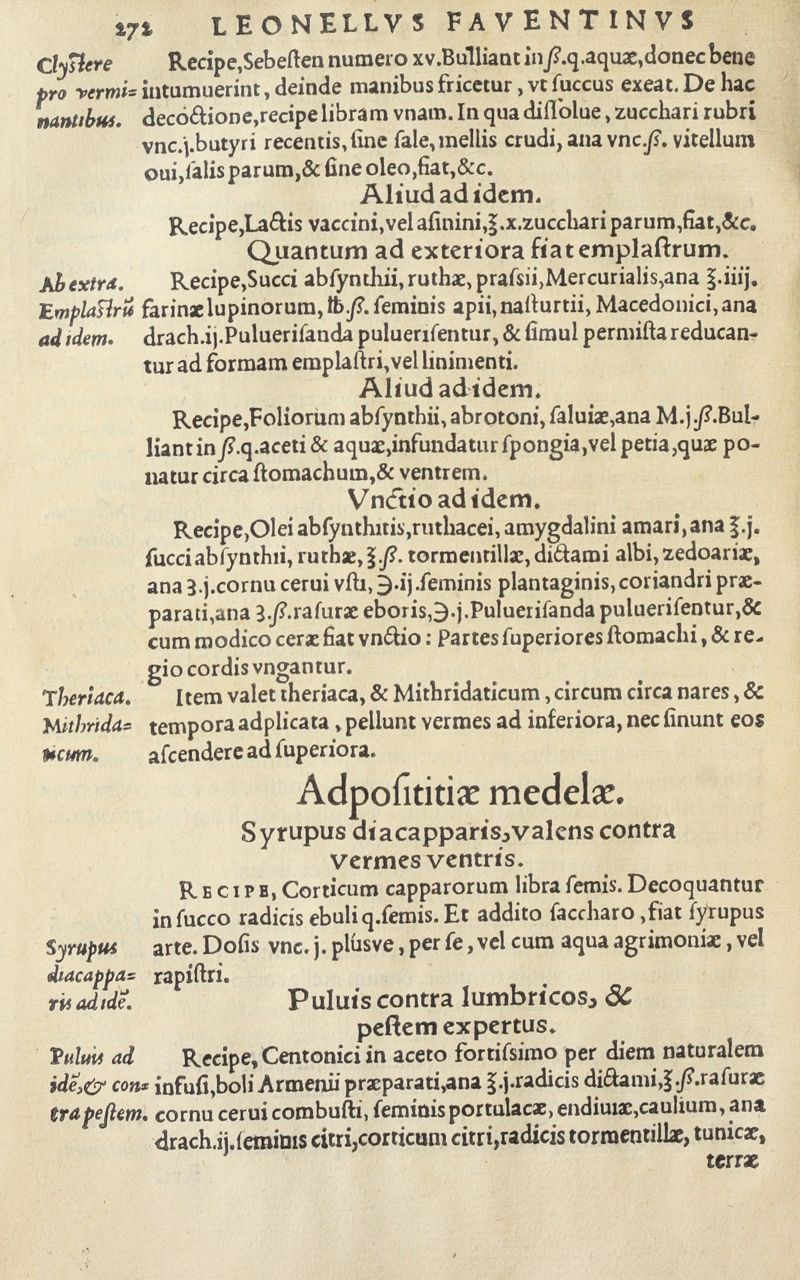 272 LEONELLVS FAVENTINVS
Clystere
pro vermi=
nantibus.
Recipe,Sebeſten numero xv.Bulliant in ß.q.aquæ,donec bene
intumuerint, deinde manibus fricetur, vt ſuccus exeat. De hac
decoctione,recipe libram vnam. In qua diſſolue, zucchari rubri
vnc.j.butyri recentis, ſine ſale, mellis crudi, ana vnc.ß. vitellum
oui,ſalis parum,& ſine oleo,fiat,&c.
Aliud ad idem.
Recipe,Lactis vaccini,vel aſinini,℥.x.zucchari parum,fiat,&c.
Quantum ad exteriora fiat emplaſtrum.
Ab extra.
Emplaſtrū
ad idem.
Recipe,Succi abſynthii, ruthæ, praſsii,Mercurialis,ana ℥.iiij.
farinæ lupinorum, ℔.ß. ſeminis apii,naſturtii, Macedonici, ana
drach.ij.Pulueriſanda pulueriſentur, & ſimul permiſta reducan-
tur ad formam emplaſtri,vel linimenti.
Aliud ad idem.
Recipe,Foliorum abſynthii, abrotoni, ſaluiæ,ana M.j.ß.Bul-
liant in ß.q.aceti & aquæ,infundatur ſpongia,vel petia,quæ po-
natur circa ſtomachum,& ventrem.
Vnctio ad idem.
Recipe,Olei abſynthitis,ruthacei, amygdalini amari, ana ℥.j.
ſucci abſynthii, ruthæ, ℥.ß. tormentillæ, dictami albi, zedoariæ,
ana ʒ.j.cornu cerui vſti, ℈.ij.ſeminis plantaginis, coriandri præ-
parati,ana ʒ.ß.raſuræ eboris,℈.j.Pulueriſanda pulueriſentur,&
cum modico ceræ fiat vnctio: Partes ſuperiores ſtomachi, & re-
gio cordis vngantur.
Theriaca.
Mithrida=
ticum.
Item valet theriaca, & Mithridaticum, circum circa nares, &
tempora adplicata, pellunt vermes ad inferiora, nec ſinunt eos
aſcendere ad ſuperiora.
Adpoſititiæ medelæ.
Syrupus diacapparis,valens contra
vermes ventris.
RECIPE, Corticum capparorum libra ſemis. Decoquantur
in ſucco radicis ebuli q.ſemis. Et addito ſaccharo, fiat ſyrupus
Syrupus
diacappa=
ris ad idē.
arte. Doſis vnc. j. plúsve, per ſe, vel cum aqua agrimoniæ, vel
rapiſtri.
Puluis contra lumbricos, &
peſtem expertus.
Puluis ad
idē,& con=
tra peſtem.
Recipe, Centonici in aceto fortiſsimo per diem naturalem
infuſi,boli Armenii præparati,ana ℥.j.radicis dictami,℥.ß.raſuræ
cornu cerui combuſti, ſeminis portulacæ, endiuiæ,caulium, ana
drach.ij.ſeminis citri,corticum citri,radicis tormentillæ, tunicæ,
terræ